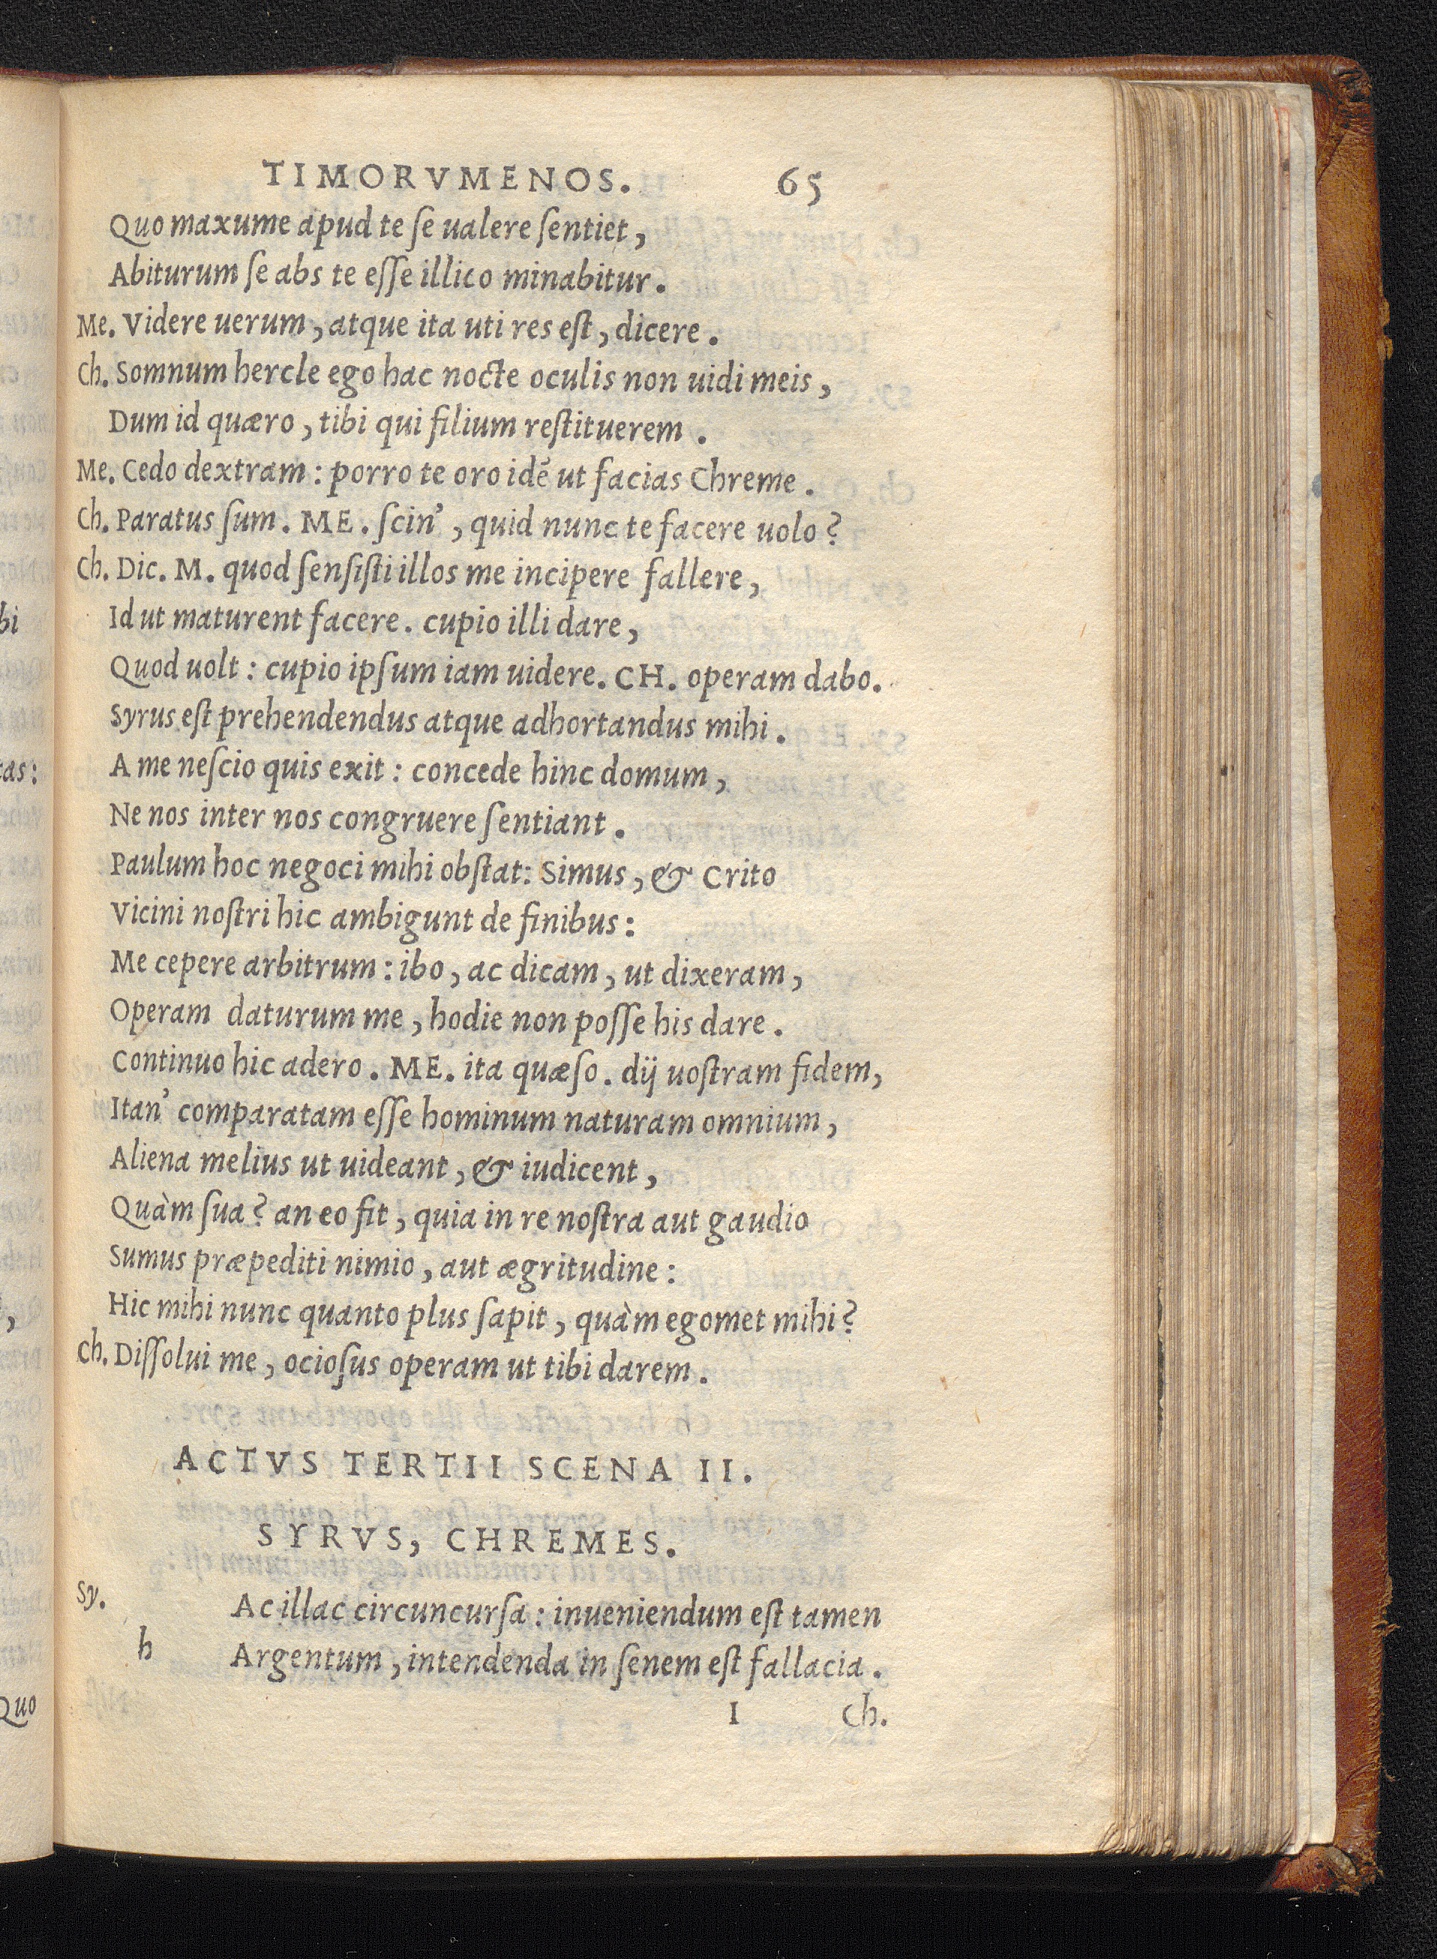 TIMORVMENOS. 65
Quo maxume apud te ſe ualere ſentiet,
Abiturum ſe abs te eſſe illico minabitur.
Me. Videre uerum, atque ita uti res eſt, dicere.
Ch. Somnum hercle ego hac nocte oculis non uidi meis,
Dum id quæro, tibi qui filium reſtituerem.
Me. Cedo dextram: porro te oro idẽ ut facias Chreme.
Ch. Paratus ſum. ME. ſcin', quid nunc te facere uolo?
Ch. Dic. M. quod ſenſiſti illos me incipere fallere,
Id ut maturent facere. cupio illi dare,
Quod uolt: cupio ipſum iam uidere. CH. operam dabo.
Syrus eſt prehendendus atque adhortandus mihi.
A me neſcio quis exit: concede hinc domum,
Ne nos inter nos congruere ſentiant.
Paulum hoc negoci mihi obſtat: Simus, & Crito
Vicini noſtri hic ambigunt de finibus:
Me cepere arbitrum: ibo, ac dicam, ut dixeram,
Operam daturum me, hodie non poſſe his dare.
Continuo hic adero. ME. ita quæſo. dij uoſtram fidem,
Itan' comparatam eſſe hominum naturam omnium,
Aliena melius ut uideant, & iudicent,
Quàm ſua? an eo fit, quia in re noſtra aut gaudio
Sumus præpediti nimio, aut ægritudine:
Hic mihi nunc quanto plus ſapit, quàm egomet mihi?
Ch. Diſſolui me, ocioſus operam ut tibi darem.
ACTVS TERTII SCENA II.
SYRVS, CHREMES.
Sy. Ac illac circuncurſa: inueniendum eſt tamen
h Argentum, intendenda in ſenem eſt fallacia.
I Ch.
bi
tas:
,
Quo